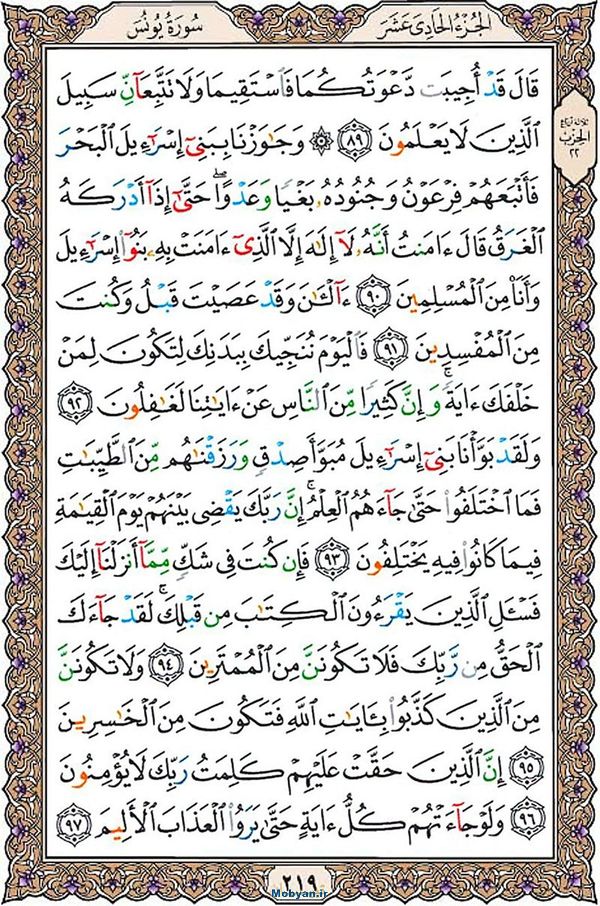 الجُزْءُ الحَادِي عَشَرَ
سُورَةُ يُونُسَ
ثلاثة أرباع
الحزب
٢٢
قَالَ قَدْ أُجِيبَت دَّعْوَتُكُمَا فَٱسْتَقِيمَا وَلَا تَتَّبِعَآنِّ سَبِيلَ
ٱلَّذِينَ لَا يَعْلَمُونَ ٨٩ ۞ وَجَٰوَزْنَا بِبَنِىٓ إِسْرَٰٓءِيلَ ٱلْبَحْرَ
فَأَتْبَعَهُمْ فِرْعَوْنُ وَجُنُودُهُۥ بَغْيًا وَعَدْوًا ۖ حَتَّىٰٓ إِذَآ أَدْرَكَهُ
ٱلْغَرَقُ قَالَ ءَامَنتُ أَنَّهُۥ لَآ إِلَٰهَ إِلَّا ٱلَّذِىٓ ءَامَنَتْ بِهِۦ بَنُوٓا۟ إِسْرَٰٓءِيلَ
وَأَنَا۠ مِنَ ٱلْمُسْلِمِينَ ٩٠ ءَآلْـَٰٔنَ وَقَدْ عَصَيْتَ قَبْلُ وَكُنتَ
مِنَ ٱلْمُفْسِدِينَ ٩١ فَٱلْيَوْمَ نُنَجِّيكَ بِبَدَنِكَ لِتَكُونَ لِمَنْ
خَلْفَكَ ءَايَةً ۚ وَإِنَّ كَثِيرًا مِّنَ ٱلنَّاسِ عَنْ ءَايَٰتِنَا لَغَٰفِلُونَ ٩٢
وَلَقَدْ بَوَّأْنَا بَنِىٓ إِسْرَٰٓءِيلَ مُبَوَّأَ صِدْقٍ وَرَزَقْنَٰهُم مِّنَ ٱلطَّيِّبَٰتِ
فَمَا ٱخْتَلَفُوا۟ حَتَّىٰ جَآءَهُمُ ٱلْعِلْمُ ۚ إِنَّ رَبَّكَ يَقْضِى بَيْنَهُمْ يَوْمَ ٱلْقِيَٰمَةِ
فِيمَا كَانُوا۟ فِيهِ يَخْتَلِفُونَ ٩٣ فَإِن كُنتَ فِى شَكٍّ مِّمَّآ أَنزَلْنَآ إِلَيْكَ
فَسْـَٔلِ ٱلَّذِينَ يَقْرَءُونَ ٱلْكِتَٰبَ مِن قَبْلِكَ ۚ لَقَدْ جَآءَكَ
ٱلْحَقُّ مِن رَّبِّكَ فَلَا تَكُونَنَّ مِنَ ٱلْمُمْتَرِينَ ٩٤ وَلَا تَكُونَنَّ
مِنَ ٱلَّذِينَ كَذَّبُوا۟ بِـَٔايَٰتِ ٱللَّهِ فَتَكُونَ مِنَ ٱلْخَٰسِرِينَ
٩٥ إِنَّ ٱلَّذِينَ حَقَّتْ عَلَيْهِمْ كَلِمَتُ رَبِّكَ لَا يُؤْمِنُونَ
٩٦ وَلَوْ جَآءَتْهُمْ كُلُّ ءَايَةٍ حَتَّىٰ يَرَوُا۟ ٱلْعَذَابَ ٱلْأَلِيمَ ٩٧
٢١٩
Mobyan.ir